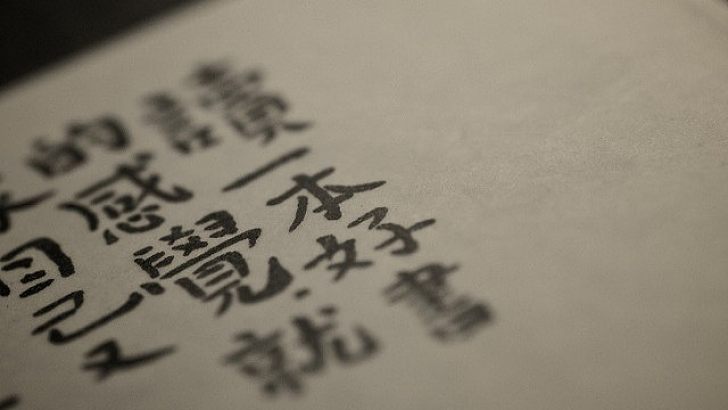 讀一本好書
的感覺，就
自己又